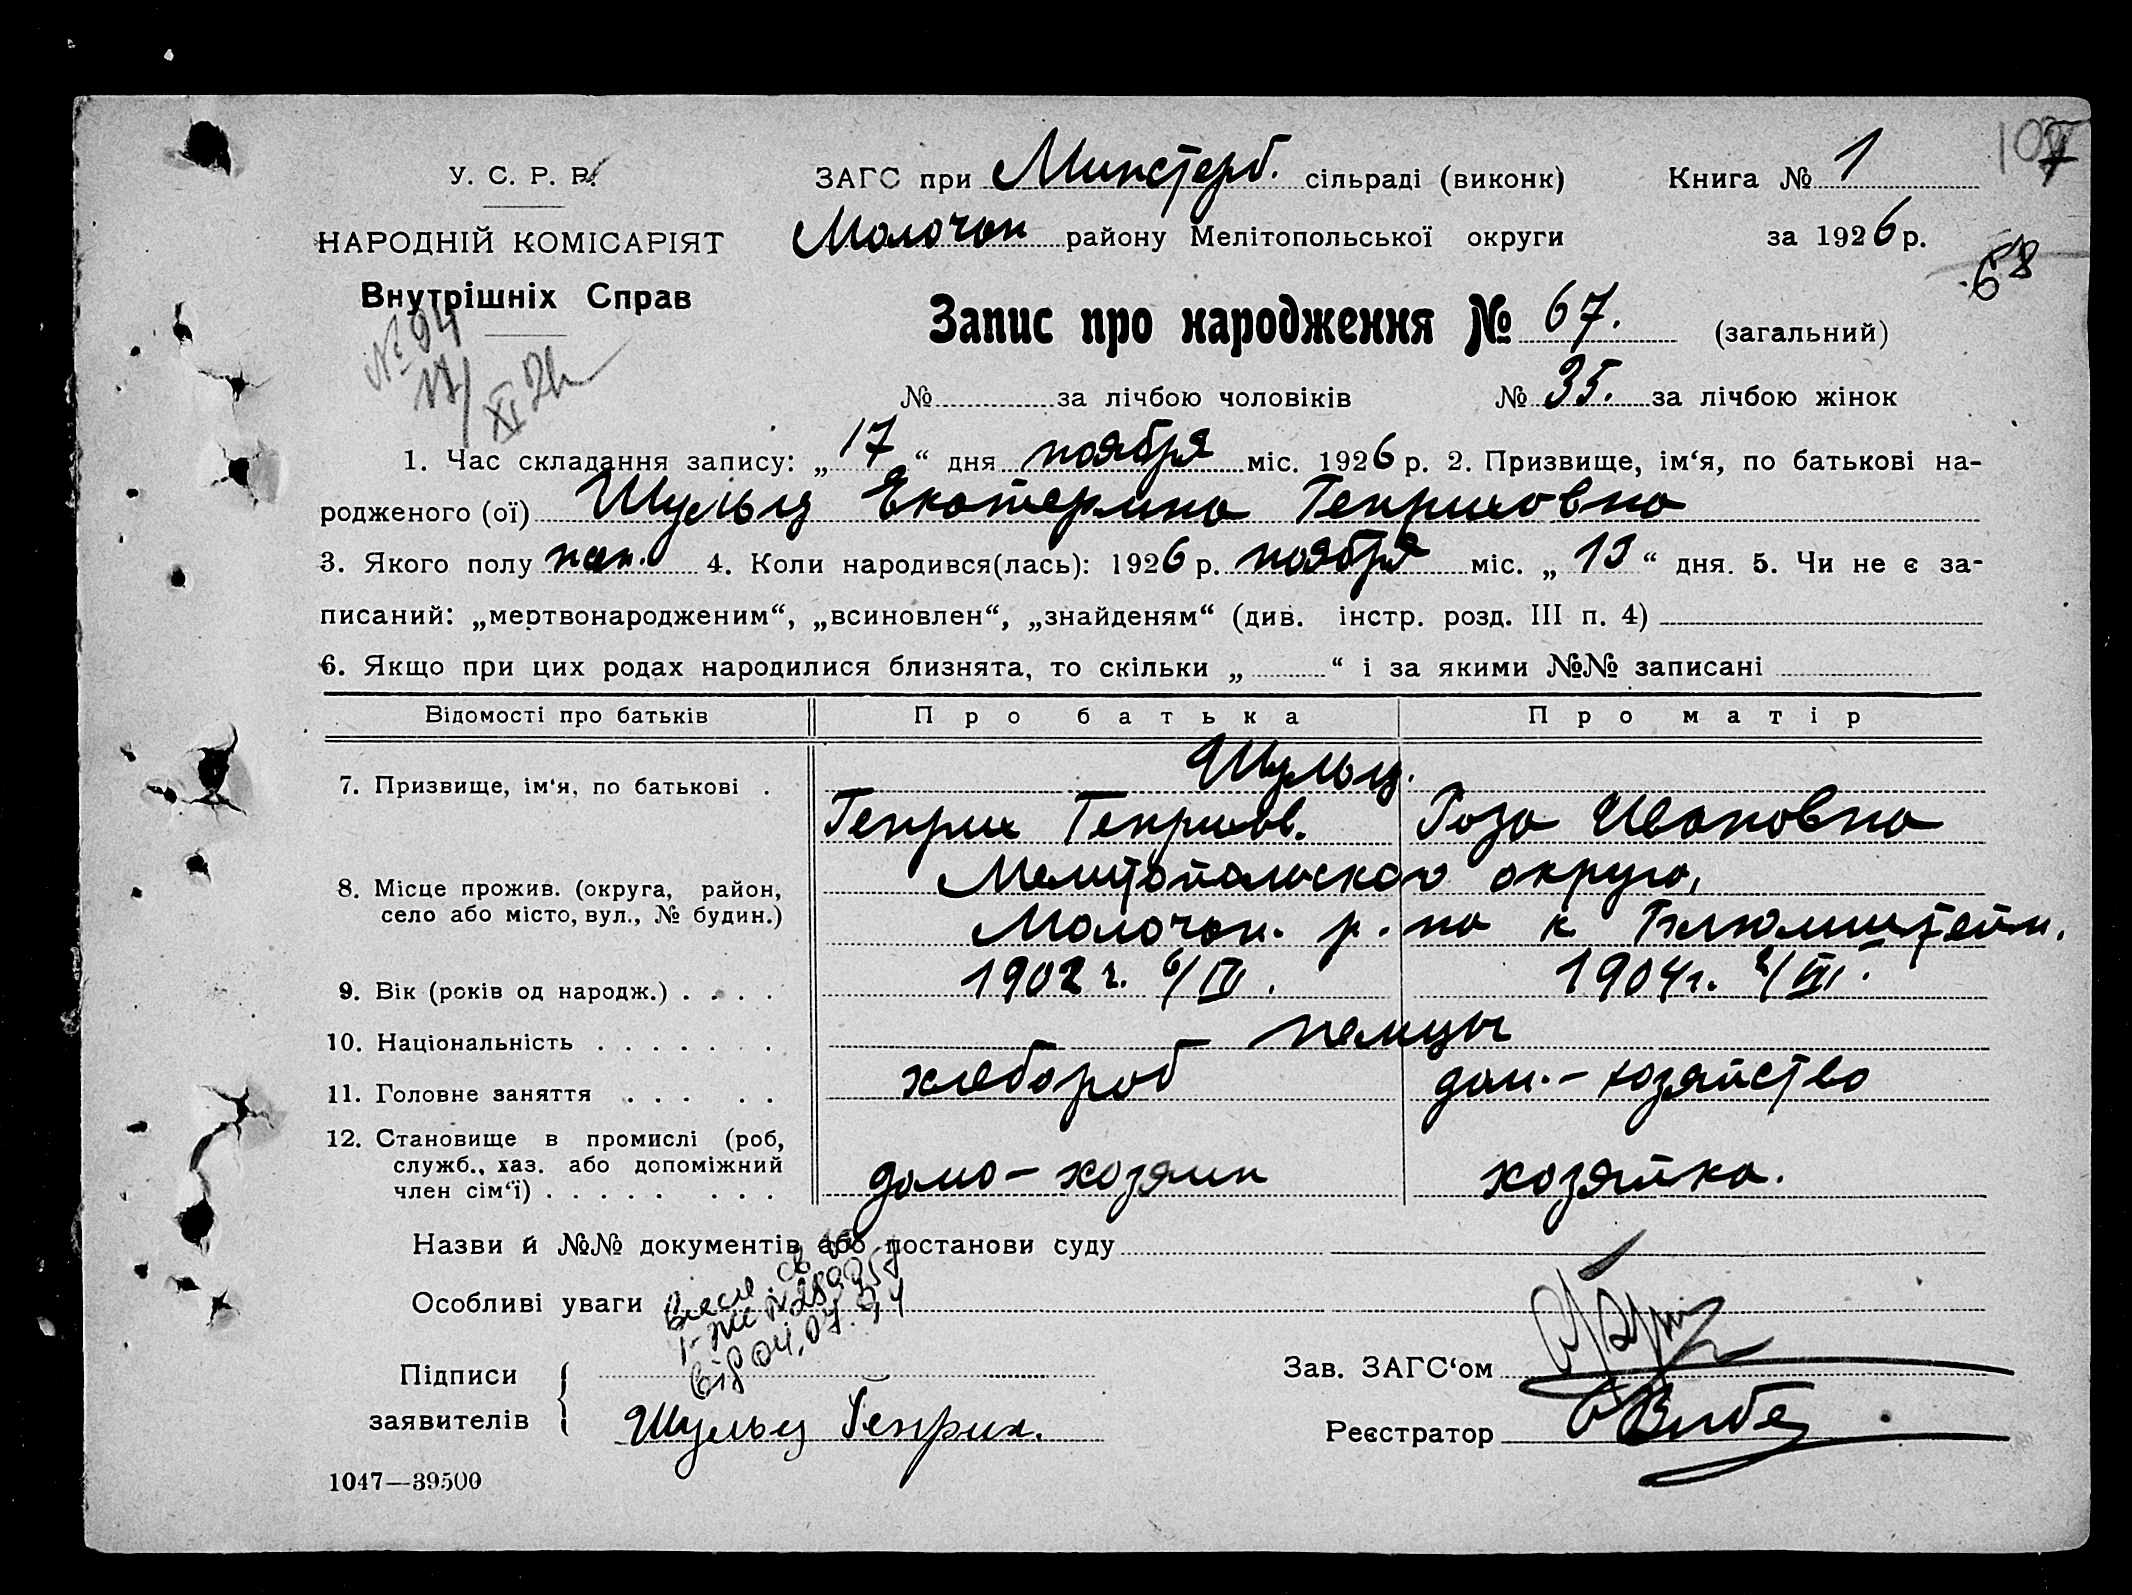 У. С. Р. Р.
НАРОДНІЙ КОМІСАРІЯТ
Внутрішніх Справ
№ 94
17/XI 26
ЗАГС при Минстерб. сільраді (виконк)
Молочан району Мелітопольської округи
Книга № 1
за 1926 р.
68
Запис про народження № 67. (загальний)
№ за лічбою чоловіків № 35. за лічбою жінок
1. Час складання запису: „ 17 “ дня ноября міс. 1926 р. 2. Призвище, ім‘я, по батькові на-
родженого (ої) Шульц Екатерина Генриховна
3. Якого полу жен. 4. Коли народився(лась): 1926 р. ноября міс. „ 13 “ дня. 5. Чи не є за-
писаний: „мертвонародженим“, „всиновлен“, „знайденям“ (див. інстр. розд. III п. 4)
6. Якщо при цих родах народилися близнята, то скільки „ “ і за якими №№ записані
Відомості про батьків Про батька Про матір
7. Призвище, ім‘я, по батькові . Шульц.
Генрих Генрихов. Роза Ивановна
8. Місце прожив. (округа, район, село або місто, вул., № будин.) Мелитопольского округа,
Молочан. р-на к. Блюмштейн.
9. Вік (років од народж.) . . . . 1902 г. 6/IV. 1904 г. 2/VIII.
10. Національність . . . . . . . немцы
11. Головне заняття . . . . . хлебороб дом.-хозяйство
12. Становище в промислі (роб,
служб., хаз. або допоміжний
член сім‘ї) . . . . . . . . домо-хозяин хозяйка.
Назви й №№ документів або постанови суду
Особливі уваги
від 04.07.
Підписи
заявителів
Шульц Генрих.
Зав. ЗАГС‘ом
Реєстратор Вибе
1047—39500